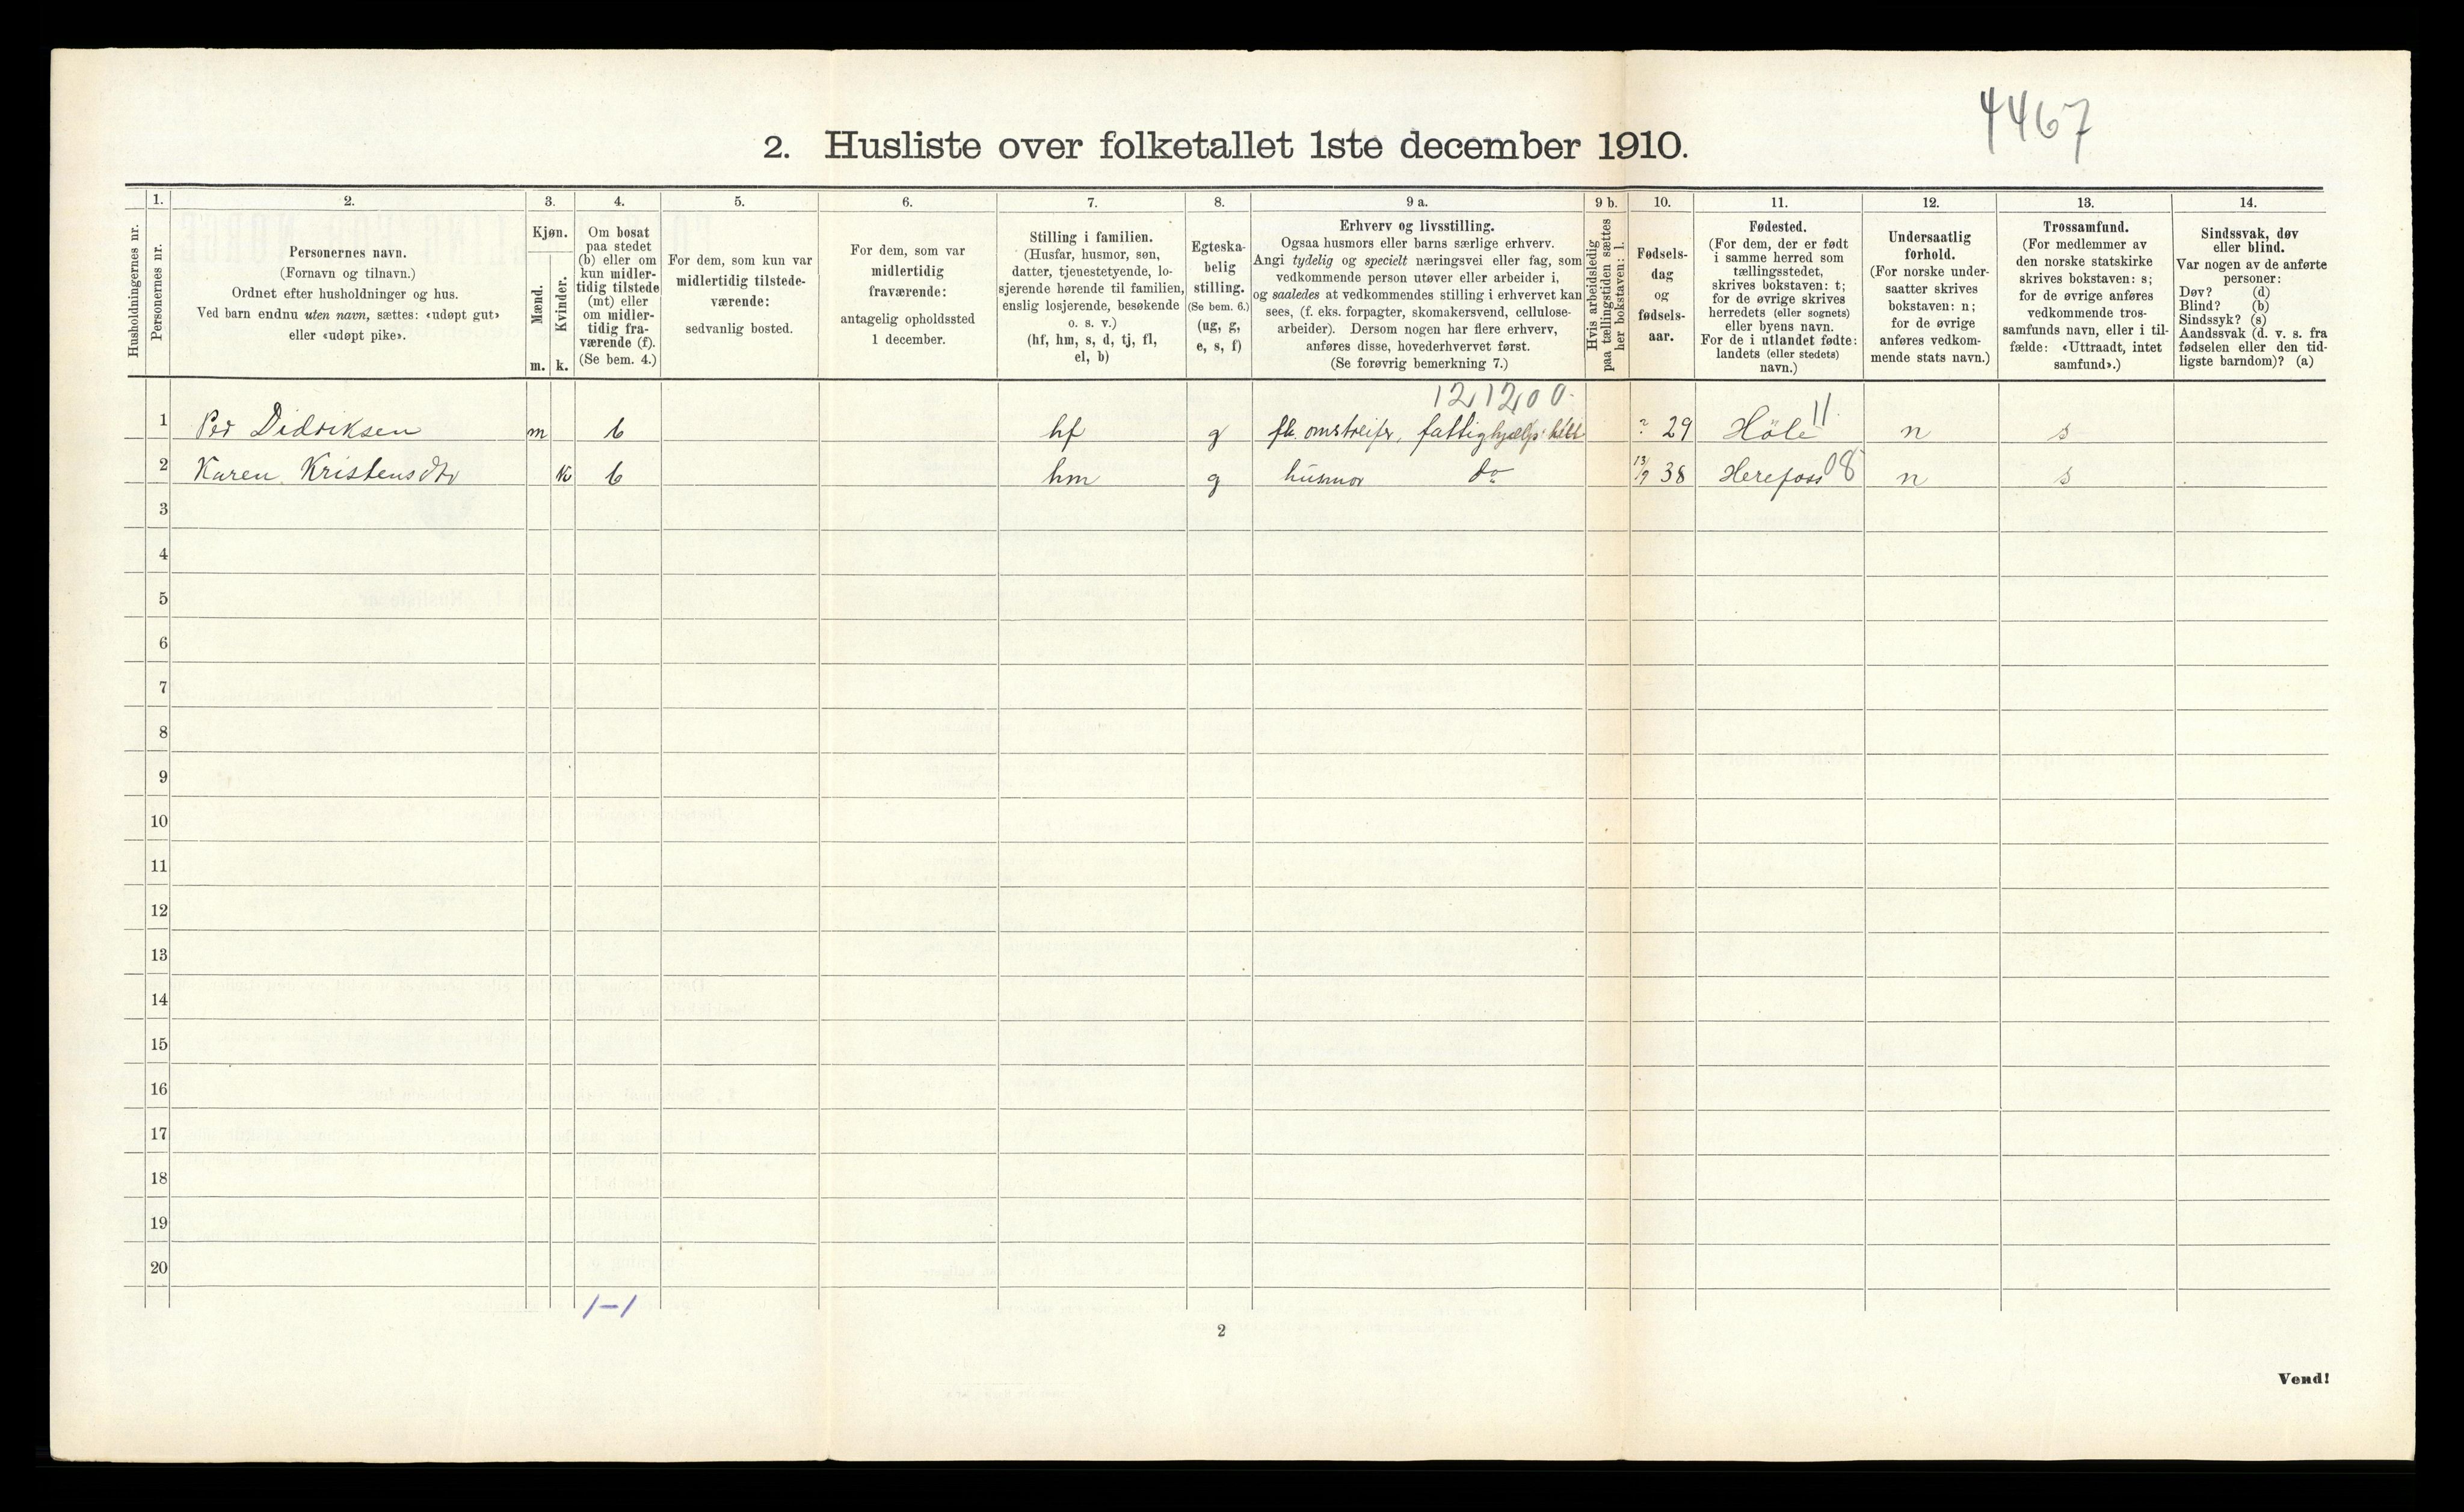 4467
2. Husliste over folketallet 1ste december 1910.
Husholdningernes nr.
1.
Personernes nr.
2.
Personernes navn.
(Fornavn og tilnavn.)
Ordnet efter husholdninger og hus.
Ved barn endnu uten navn, sættes: «udøpt gut»
eller «udøpt pike».
3.
Kjøn.
Mænd.
m.
Kvinder.
k.
4.
Om bosat
paa stedet
(b) eller om
kun midler-
tidig tilstede
(mt) eller
om midler-
tidig fra-
værende (f).
(Se bem. 4.)
5.
For dem, som kun var
midlertidig tilstede-
værende:
sedvanlig bosted.
6.
For dem, som var
midlertidig
fraværende:
antagelig opholdssted
1 december.
7.
Stilling i familien.
(Husfar, husmor, søn,
datter, tjenestetyende, lo-
sjerende hørende til familien,
enslig losjerende, besøkende
o. s. v.)
(hf, hm, s, d, tj, fl,
el, b)
8.
Egteska-
belig
stilling.
(Se bem. 6.)
(ug, g,
e, s, f)
9 a.
Erhverv og livsstilling.
Ogsaa husmors eller barns særlige erhverv.
Angi tydelig og specielt næringsvei eller fag, som
vedkommende person utøver eller arbeider i,
og saaledes at vedkommendes stilling i erhvervet kan
sees, (f. eks. forpagter, skomakersvend, cellulose-
arbeider). Dersom nogen har flere erhverv,
anføres disse, hovederhvervet først.
(Se forøvrig bemerkning 7.)
9 b.
Hvis arbeidsledig
paa tællingstiden sættes
her bokstaven: l.
10.
Fødsels-
dag
og
fødsels-
aar.
11.
Fødested.
(For dem, der er født
i samme herred som
tællingsstedet,
skrives bokstaven: t;
for de øvrige skrives
herredets (eller sognets)
eller byens navn.
For de i utlandet fødte:
landets (eller stedets)
navn.)
12.
Undersaatlig
forhold.
(For norske under-
saatter skrives
bokstaven: n;
for de øvrige
anføres vedkom-
mende stats navn.)
13.
Trossamfund.
(For medlemmer av
den norske statskirke
skrives bokstaven: s;
for de øvrige anføres
vedkommende tros-
samfunds navn, eller i til-
fælde: «Uttraadt, intet
samfund».)
14.
Sindssvak, døv
eller blind.
Var nogen av de anførte
personer:
Døv? (d)
Blind? (b)
Sindssyk? (s)
Aandssvak (d. v. s. fra
fødselen eller den tid-
ligste barndom)? (a)
121200.
1 Per Didriksen m b hf g fh. omstreifer, fattighjælp ? 29 Höle 11 n s
2 Karen Kristensdtr k b hm g husmor do 13/9 38 Herefoss 08 n s
3
4
5
6
7
8
9
10
11
12
13
14
15
16
17
18
19
20
1-1
2
Vend!